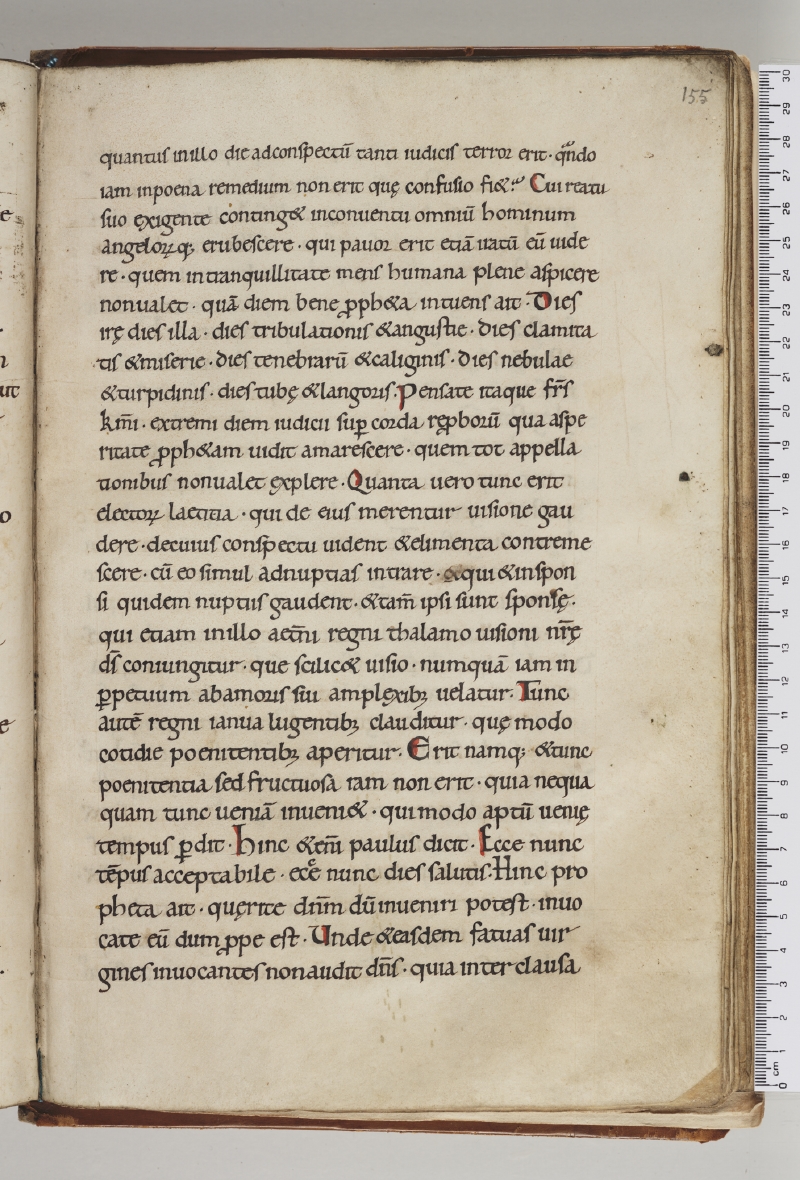 155
quantuſ in illo die ad conſpectū tanti iudiciſ terror erit · qn̄do
iam in poena remedium non erit quę confuſio fi&? Cui reatu
ſuo exigente conting& in conuentu omniū hominum
angeloꝝq; erubeſcere · qui pauor erit etiā iratū eū uide
re · quem in tranquillitate menſ humana plene aſpicere
non ualet · quā diem bene ꝓph&a intuenſ ait · Dieſ
irę dieſ illa · dieſ tribulationiſ & anguſtie · dieſ clamita
tiſ & miſerie · dieſ tenebrarū & caliginiſ · dieſ nebulae
& turpidiniſ · dieſ tubę & langoriſ. Penſate itaque fr̄ſ
km̄i · extremi diem iudicii ſuꝑ corda reꝓborū qua aſpe
ritate ꝓph&am uidit amareſcere · quem tot appella
tionibuſ non ualet explere · Quanta uero tunc erit
electoꝝ laetitia · qui de eiuſ merentur uiſione gau
dere · de cuiuſ conſpectu uident & elimenta contreme
ſcere · cū eo ſimul ad nuptiaſ intrare · & qui & in ſpon
ſi quidem nuptiiſ gaudent · & tam̄ ipſi ſunt ſponſę ·
qui etiam in illo aet̄ni regni thalamo uiſioni nr̄ę
dī coniungitur · que ſcilic& uiſio · numquā iam in
ꝑpetuum ab amoriſ ſui amplexibꝫ uelatur · Tunc
autē regni ianua lugentibꝫ clauditur · quę modo
cotidie poenitentibꝫ aperitur · Erit namq; & tunc
poenitentia ſed fructuoſa iam non erit · quia nequa
quam tunc ueniā inueni& · qui modo aptū uenię
tempuſ ꝑdit · Hinc &em̄ pauluſ dicit · Ecce nunc
tēpuſ acceptabile · ecē nunc dieſ ſalutiſ. Hinc pro
pheta ait · quęrite dn̄m dū inueniri poteſt · inuo
cate eū dum ꝓpe eſt · Unde & eaſdem fatuaſ uir
gineſ inuocanteſ non audit dn̄ſ · quia inter clauſa